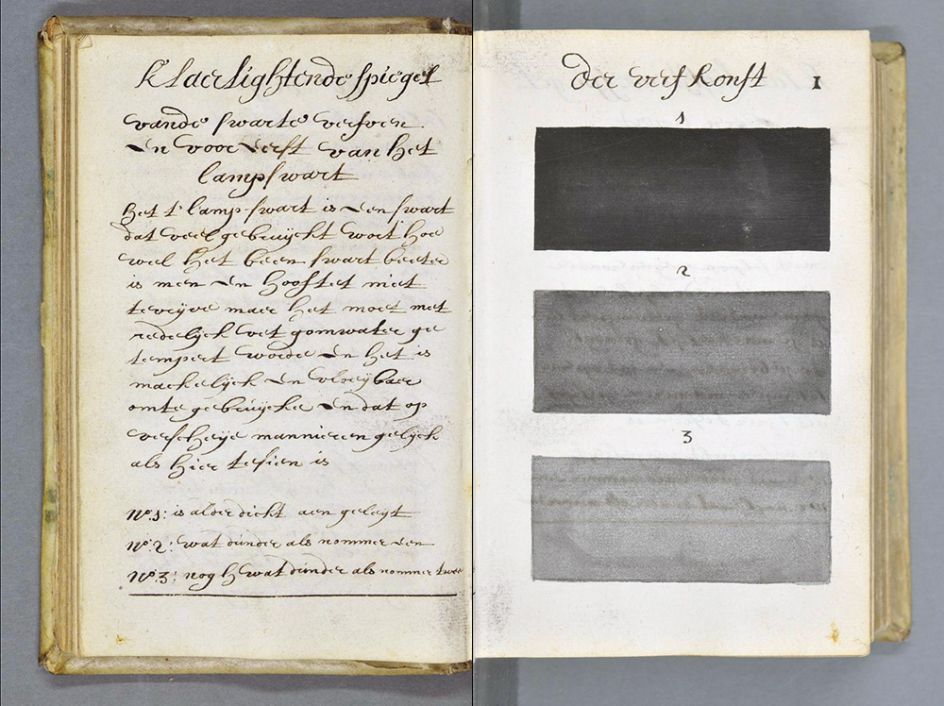 Klaerlightende spiegel
vande swarte verfven
en voor eerst van het
lampswart
Het t' lamp swart is een swart
dat veel gebruijckt wort hoe
wel het been swart beeter
is men en hooftet niet
te vrijve maer het moet met
redelijck vet gomwater ge
tempert worde en het is
mackelijck en vloeijbaer
omte gebruijcke en dat op
verscheije mannieren gelyck
als hier tesien is
No. 1: is alder dickt aen geleyt
No. 2: wat dunder als nommer een
No. 3: nog h wat dunder als nommer twee
der verfkonst 1
1
2
3